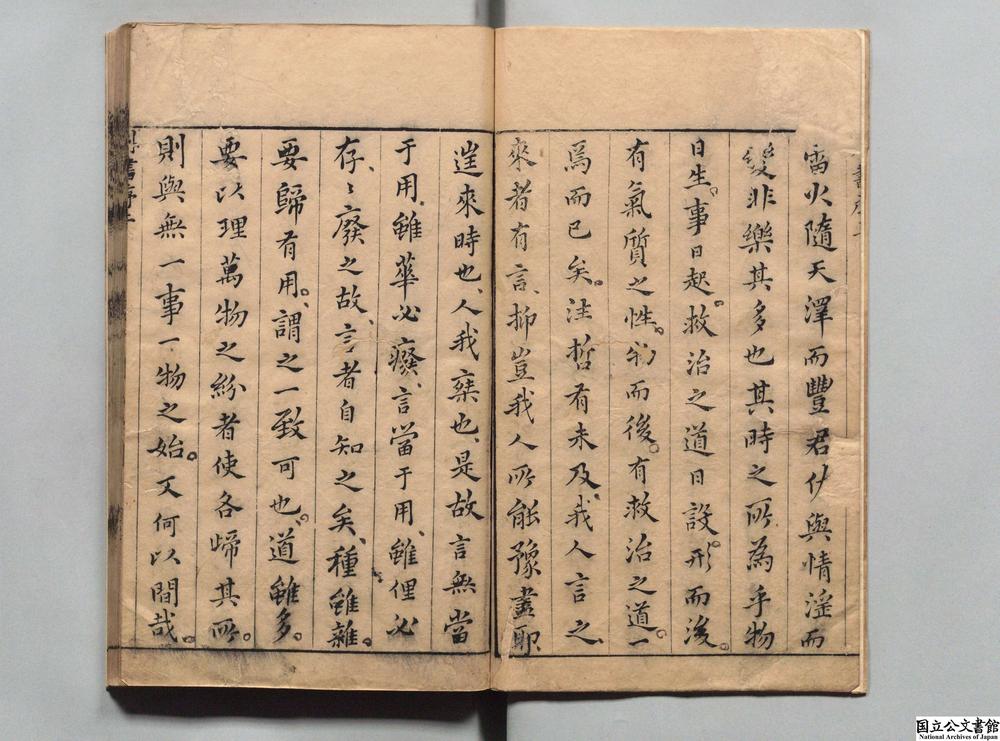 雷火隨天澤而豐君什與情滛而
變非樂其多也其時之所為乎物
日生。事日起。救治之道日設。形而後。
有氣質之性。物而後。有救治之道。一
爲而已矣。往哲有未及、我人言之、
來者有言、抑豈我人所能豫盡耶
遑來時也、人我寀也、是故言無當
于用、雖華必癈、言當于用、雖俚必
存、〻廢之故、言者自知之矣、種雖雜。
要歸有用。謂之一致可也。道雖多。
要以理萬物之紛者使各歸其所。
則與無一事一物之始。又何以間哉。
国立公文書館
National Archives of Japan